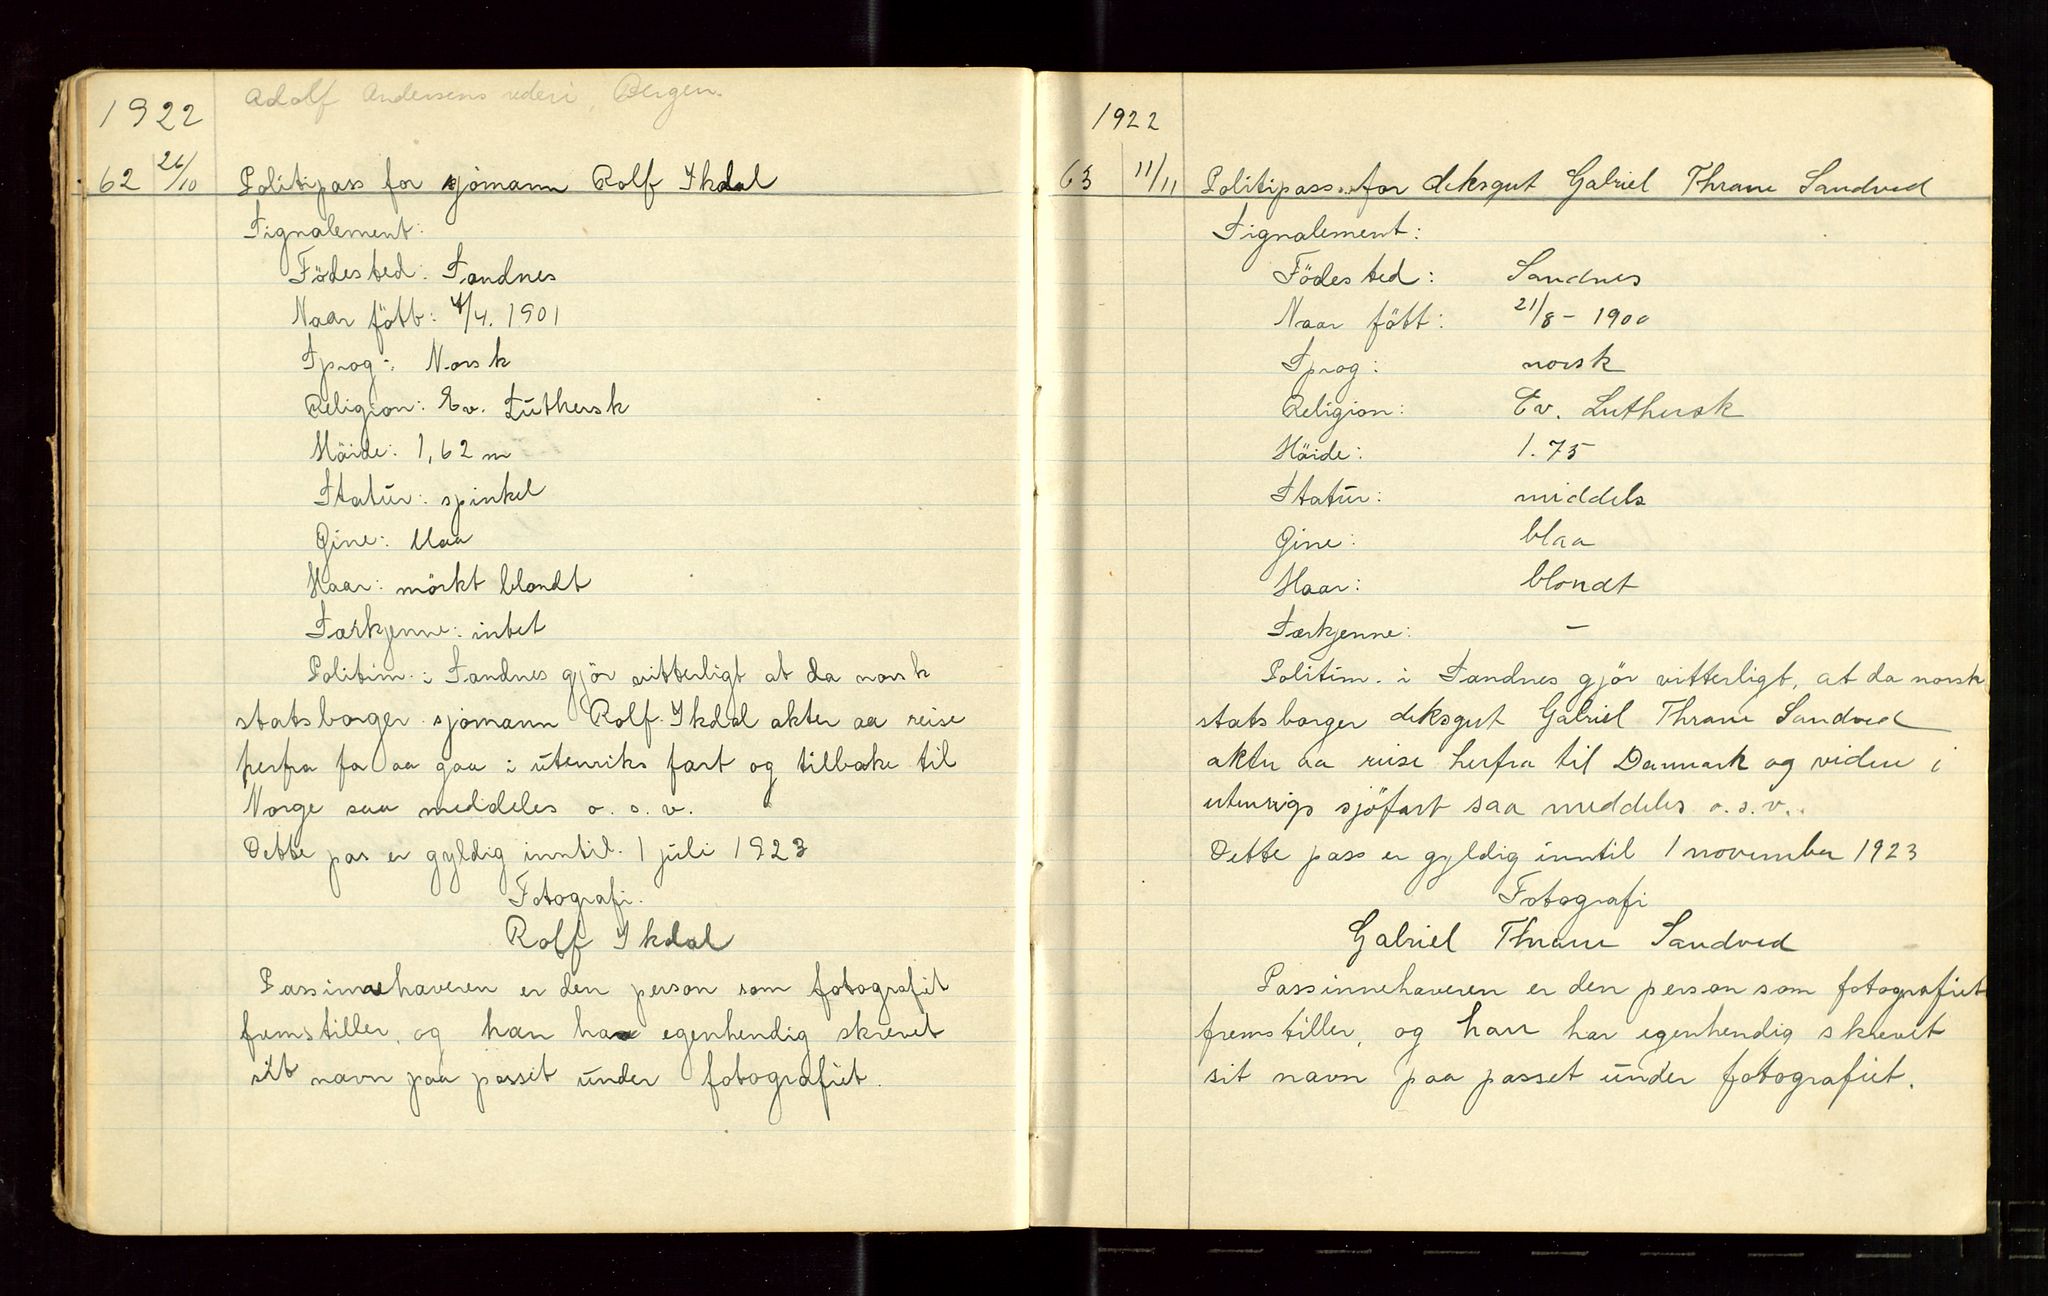 Adolf Andersens rederi, Bergen.
1922
62 26/10 Politipass for sjömann Rolf Ikdal
Signalement:
Födested: Sandnes
Naar fött: 4/4. 1901
Sprog: Norsk
Religion: Ev. Luthersk
Höide: 1,62 m
Statur: spinkel
Öine: blaa
Haar: mörkt blondt
Særkjenne: intet
Politim. i Sandnes gjör vitterligt at da norsk
statsborger sjömann Rolf Ikdal akter aa reise
herfra for aa gaa i utenriks fart og tilbake til
Norge saa meddeles o. s. v.
Dette pas er gyldig inntil 1 juli 1923
Fotografi.
Rolf Ikdal
Passinnehaveren er den person som fotografiet
fremstiller, og han har egenhendig skrevet
sit navn paa passet under fotografiet.
1922
63 11/11 Politipass for deksgut Gabriel Thrane Sandved
Signalement:
Födested: Sandnes
Naar fött: 21/8 - 1900
Sprog: norsk
Religion: Ev. Luthersk
Höide: 1.75
Statur: middels
Öine: blaa
Haar: blondt
Særkjenne: -
Politim. i Sandnes gjör vitterligt, at da norsk
statsborger deksgut Gabriel Thrane Sandved
akter aa reise herfra til Danmark og videre i
utenrigs sjöfart saa meddeles o.s.v.
Dette pass er gyldig inntil 1 november 1923
Fotografi
Gabriel Thrane Sandved
Passinnehaveren er den person som fotografiet
fremstiller, og han har egenhendig skrevet
sit navn paa passet under fotografiet.